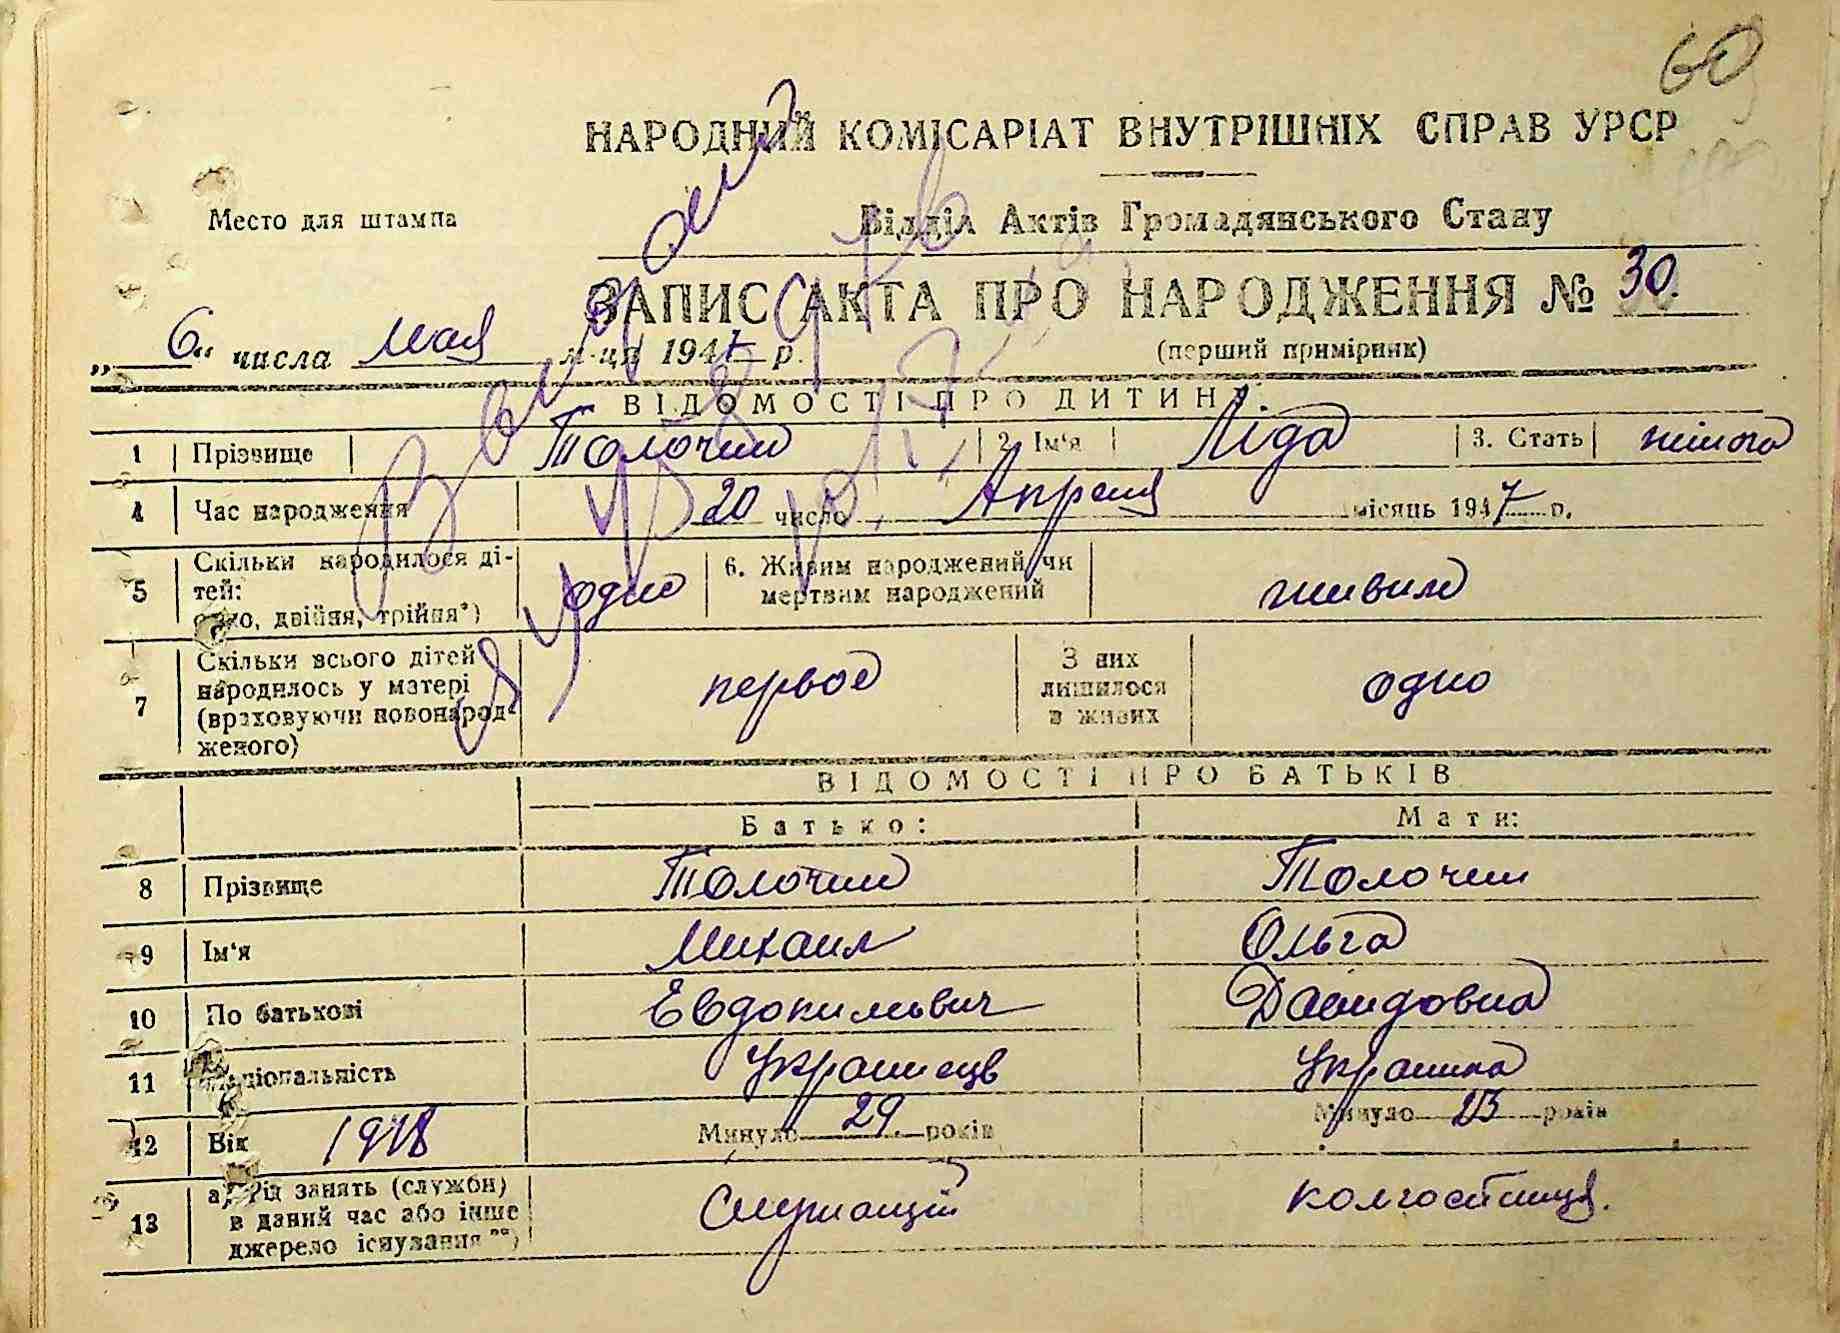 60
НАРОДНИЙ КОМІСАРІАТ ВНУТРІШНІХ СПРАВ УРСР
Место для штампа
Відділ Актів Громадянського Стану
ЗАПИС АКТА ПРО НАРОДЖЕННЯ № 30.
„ 6 “ числа мая м-ця 1947 р.
(перший примірник)
ВІДОМОСТІ ПРО ДИТИНУ:
1 Прізвище Толочин 2. Ім'я Ліда 3. Стать жіноча
4 Час народження 20 число Апреля місяць 1947 р.
5 Скільки народилося ді-
тей:
одно, двійня, трійня*) одно 6. Живим народжений чи
мертвим народжений живим
7 Скільки всього дітей
народилось у матері
(враховуючи новонарод-
женого) первое З них
лишилося
в живих одно
ВІДОМОСТІ ПРО БАТЬКІВ
Батько: Мати:
8 Прізвище Толочин Толочин
9 Ім'я Михаил Ольга
10 По батькові Евдокимович Давидовна
11 Національність Украинець Украинка
12 Вік 1918 Минуло 29. років Минуло 23 років
13 а) Рід занять (служби)
в даний час або інше
джерело існування**) Служащий колгостниця.